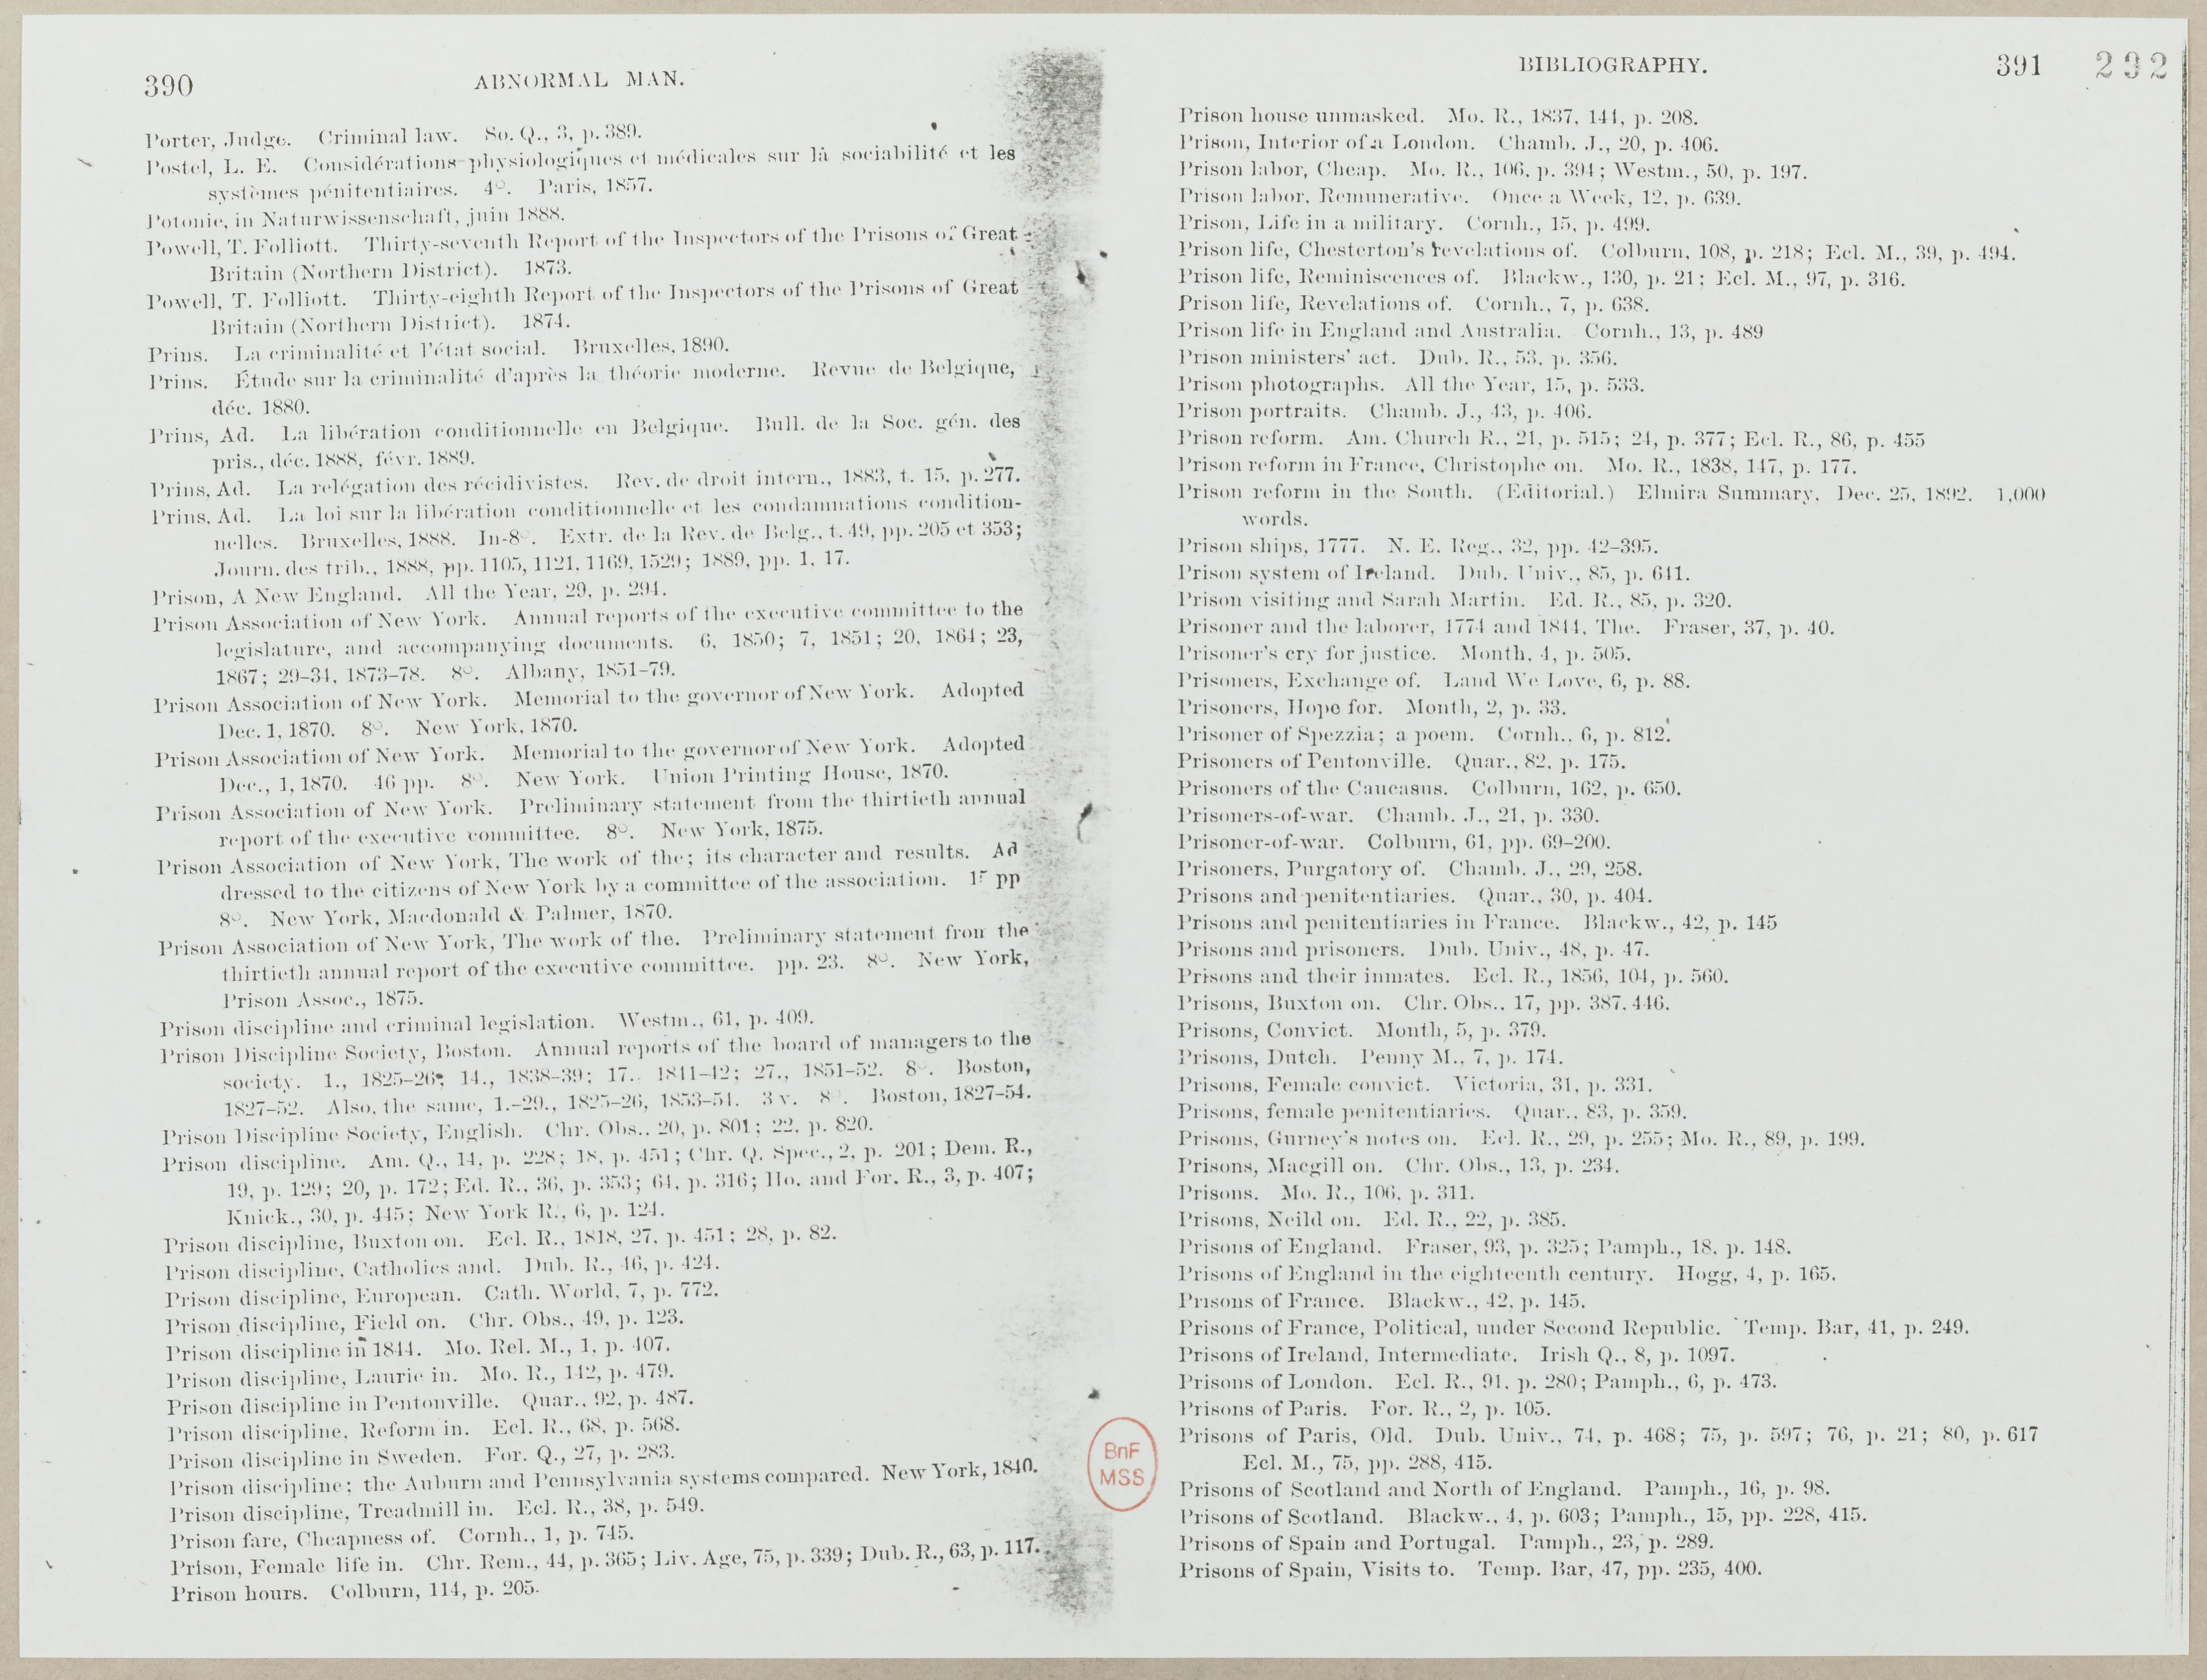 390
ABNORMAL MAN.
Porter, Judge. Criminal law. So. Q., 3, p. 389.
Postel, L. E. Considérations physiologiques et médicales sur la sociabilité et les
systèmes pénitentiaires. 4°. Paris, 1857.
Potonie, in Naturwissenschaft, juin 1888.
Powell, T. Folliott. Thirty-seventh Report of the Inspectors of the Prisons of Great
Britain (Northern District). 1873.
Powell, T. Folliott. Thirty-eighth Report of the Inspectors of the Prisons of Great
Britain (Northern District). 1874.
Prins. La criminalité et l'état social. Bruxelles, 1890.
Prins. Étude sur la criminalité d'après la théorie moderne. Revue de Belgique,
déc. 1880.
Prins, Ad. La libération conditionnelle en Belgique. Bull. de la Soc. gén. des
pris., déc. 1888, févr. 1889.
Prins, Ad. La relégation des récidivistes. Rev. de droit intern., 1883, t. 15, p. 277.
Prins, Ad. La loi sur la libération conditionnelle et les condamnations condition-
nelles. Bruxelles, 1888. In-8°. Extr. de la Rev. de Belg., t. 49, pp. 205 et 353;
Journ. des trib., 1888, pp. 1105, 1121, 1169, 1529; 1889, pp. 1, 17.
Prison, A New England. All the Year, 29, p. 294.
Prison Association of New York. Annual reports of the executive committee to the
legislature, and accompanying documents. 6, 1850; 7, 1851; 20, 1864; 23,
1867; 29–34, 1873–78. 8°. Albany, 1851–79.
Prison Association of New York. Memorial to the governor of New York. Adopted
Dec. 1, 1870. 8°. New York, 1870.
Prison Association of New York. Memorial to the governor of New York. Adopted
Dec., 1, 1870. 46 pp. 8°. New York. Union Printing House, 1870.
Prison Association of New York. Preliminary statement from the thirtieth annual
report of the executive committee. 8°. New York, 1875.
Prison Association of New York, The work of the; its character and results. Ad
dressed to the citizens of New York by a committee of the association. pp
8°. New York, Macdonald & Palmer, 1870.
Prison Association of New York, The work of the. Preliminary statement from the
thirtieth annual report of the executive committee. pp. 23. 8°. New York,
Prison Assoc., 1875.
Prison discipline and criminal legislation. Westm., 61, p. 409.
Prison Discipline Society, Boston. Annual reports of the board of managers to the
society. 1., 1825–26; 14., 1838–39; 17., 1841–42; 27., 1851–52. 8°. Boston,
1827–52. Also, the same, 1.–29., 1825–26, 1853–54. 3 v. 8°. Boston, 1827–54.
Prison Discipline Society, English. Chr. Obs., 20, p. 801; 22, p. 820.
Prison discipline. Am. Q., 14, p. 228; 18, p. 451; Chr. Q. Spec., 2, p. 201; Dem. R.,
19, p. 129; 20, p. 172; Ed. R., 36, p. 353; 64, p. 316; Ho. and For. R., 3, p. 407;
Knick., 30, p. 445; New York R., 6, p. 124.
Prison discipline, Buxton on. Ecl. R., 1818, 27, p. 451; 28, p. 82.
Prison discipline, Catholics and. Dub. R., 46, p. 424.
Prison discipline, European. Cath. World, 7, p. 772.
Prison discipline, Field on. Chr. Obs., 49, p. 123.
Prison discipline in 1844. Mo. Rel. M., 1, p. 407.
Prison discipline, Laurie in. Mo. R., 142, p. 479.
Prison discipline in Pentonville. Quar., 92, p. 487.
Prison discipline, Reform in. Ecl. R., 68, p. 568.
Prison discipline in Sweden. For. Q., 27, p. 283.
Prison discipline; the Auburn and Pennsylvania systems compared. New York, 1840.
Prison discipline, Treadmill in. Ecl. R., 38, p. 549.
Prison fare, Cheapness of. Cornh., 1, p. 745.
Prison, Female life in. Chr. Rem., 44, p. 365; Liv. Age, 75, p. 339; Dub. R., 63, p. 117.
Prison hours. Colburn, 114, p. 205.
BIBLIOGRAPHY.
391
292
Prison house unmasked. Mo. R., 1837, 144, p. 208.
Prison, Interior of a London. Chamb. J., 20, p. 406.
Prison labor, Cheap. Mo. R., 106, p. 394; Westm., 50, p. 197.
Prison labor, Remunerative. Once a Week, 12, p. 639.
Prison, Life in a military. Cornh., 15, p. 499.
Prison life, Chesterton's revelations of. Colburn, 108, p. 218; Ecl. M., 39, p. 494.
Prison life, Reminiscences of. Blackw., 130, p. 21; Ecl. M., 97, p. 316.
Prison life, Revelations of. Cornh., 7, p. 638.
Prison life in England and Australia. Cornh., 13, p. 489
Prison ministers' act. Dub. R., 53, p. 356.
Prison photographs. All the Year, 15, p. 533.
Prison portraits. Chamb. J., 43, p. 406.
Prison reform. Am. Church R., 21, p. 515; 24, p. 377; Ecl. R., 86, p. 455
Prison reform in France, Christophe on. Mo. R., 1838, 147, p. 177.
Prison reform in the South. (Editorial.) Elmira Summary, Dec. 25, 1892. 1,000
words.
Prison ships, 1777. N. E. Reg., 32, pp. 42–395.
Prison system of Ireland. Dub. Univ., 85, p. 641.
Prison visiting and Sarah Martin. Ed. R., 85, p. 320.
Prisoner and the laborer, 1774 and 1844, The. Fraser, 37, p. 40.
Prisoner's cry for justice. Month, 4, p. 505.
Prisoners, Exchange of. Land We Love, 6, p. 88.
Prisoners, Hope for. Month, 2, p. 33.
Prisoner of Spezzia; a poem. Cornh., 6, p. 812.
Prisoners of Pentonville. Quar., 82, p. 175.
Prisoners of the Caucasus. Colburn, 162, p. 650.
Prisoners-of-war. Chamb. J., 21, p. 330.
Prisoner-of-war. Colburn, 61, pp. 69–200.
Prisoners, Purgatory of. Chamb. J., 29, 258.
Prisons and penitentiaries. Quar., 30, p. 404.
Prisons and penitentiaries in France. Blackw., 42, p. 145
Prisons and prisoners. Dub. Univ., 48, p. 47.
Prisons and their inmates. Ecl. R., 1856, 104, p. 560.
Prisons, Buxton on. Chr. Obs., 17, pp. 387, 446.
Prisons, Convict. Month, 5, p. 379.
Prisons, Dutch. Penny M., 7, p. 174.
Prisons, Female convict. Victoria, 31, p. 331.
Prisons, female penitentiaries. Quar., 83, p. 359.
Prisons, Gurney's notes on. Ecl. R., 29, p. 255; Mo. R., 89, p. 199.
Prisons, Macgill on. Chr. Obs., 13, p. 234.
Prisons. Mo. R., 106, p. 311.
Prisons, Neild on. Ed. R., 22, p. 385.
Prisons of England. Fraser, 93, p. 325; Pamph., 18, p. 148.
Prisons of England in the eighteenth century. Hogg, 4, p. 165.
Prisons of France. Blackw., 42, p. 145.
Prisons of France, Political, under Second Republic. Temp. Bar, 41, p. 249.
Prisons of Ireland, Intermediate. Irish Q., 8, p. 1097.
Prisons of London. Ecl. R., 91, p. 280; Pamph., 6, p. 473.
Prisons of Paris. For. R., 2, p. 105.
Prisons of Paris, Old. Dub. Univ., 74, p. 468; 75, p. 597; 76, p. 21; 80, p. 617
Ecl. M., 75, pp. 288, 415.
Prisons of Scotland and North of England. Pamph., 16, p. 98.
Prisons of Scotland. Blackw., 4, p. 603; Pamph., 15, pp. 228, 415.
Prisons of Spain and Portugal. Pamph., 23, p. 289.
Prisons of Spain, Visits to. Temp. Bar, 47, pp. 235, 400.
BnF
MSS